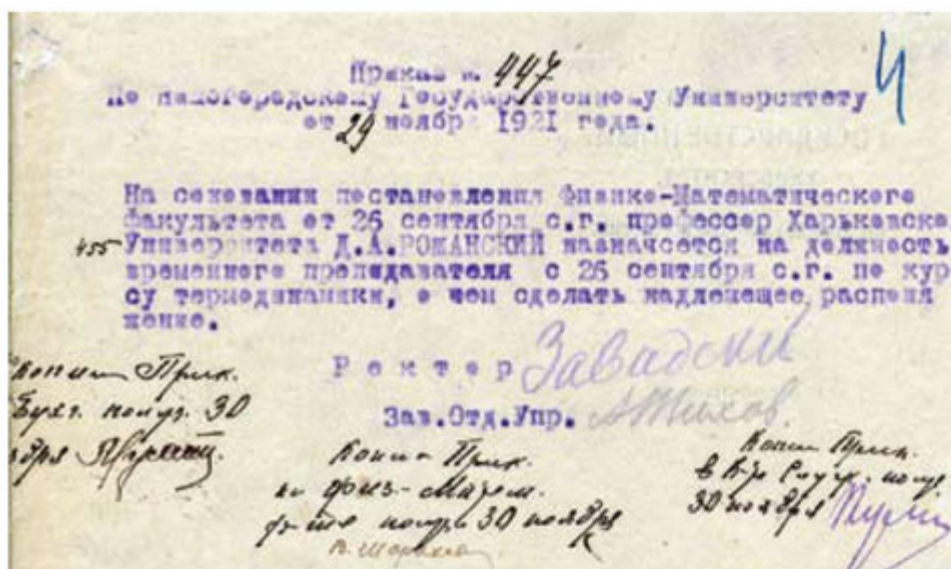 Приказ н. 447
По нижогородскому Государственному Университету
от 29 ноября 1921 года.
4
На основании постановления Физико-Математического
факультета от 26 сентября с.г. профессор Харьковско
455
Университета Д.А.РОЖАНСКИЙ назначается на должность
временного преподавателя с 26 сентября с.г. по кур
су термодинамики, о чем сделать надлежащее распоря
жение.
Ректор Завадский
Зав.Отд.Упр.
Копию Прик.
Бухг. получ. 30
Копию Прик.
по физ-Матем.
ф-ту получ 30 ноября
Копию Прик.
30 ноября